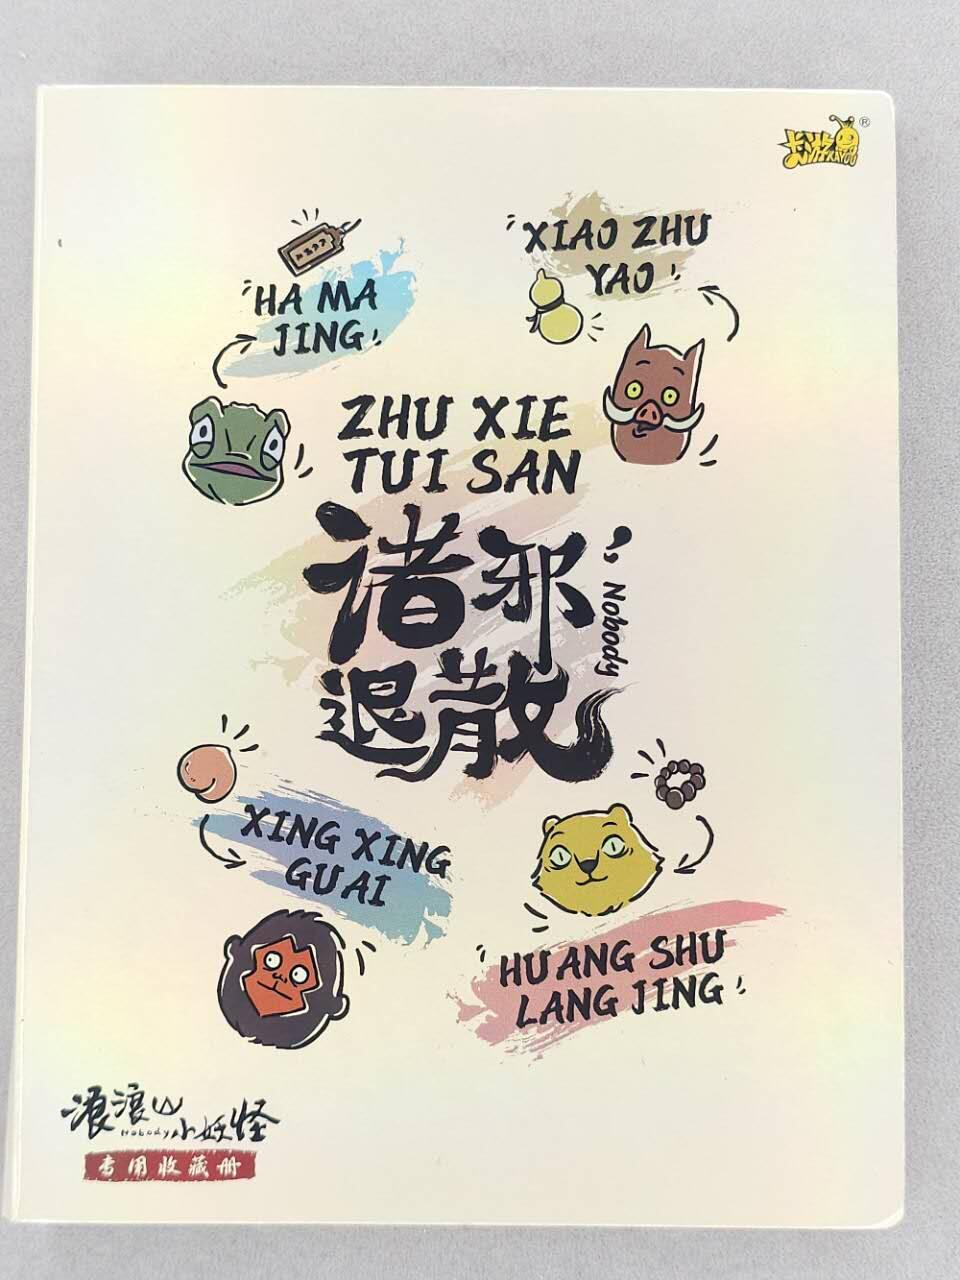 卡游KAYOU®
HA MA
JING
XIAO ZHU
YAO
ZHU XIE
TUI SAN
诸邪
退散
Nobody
XING XING
GUAI
HUANG SHU
LANG JING
浪浪山小妖怪
Nobody
专用收藏册